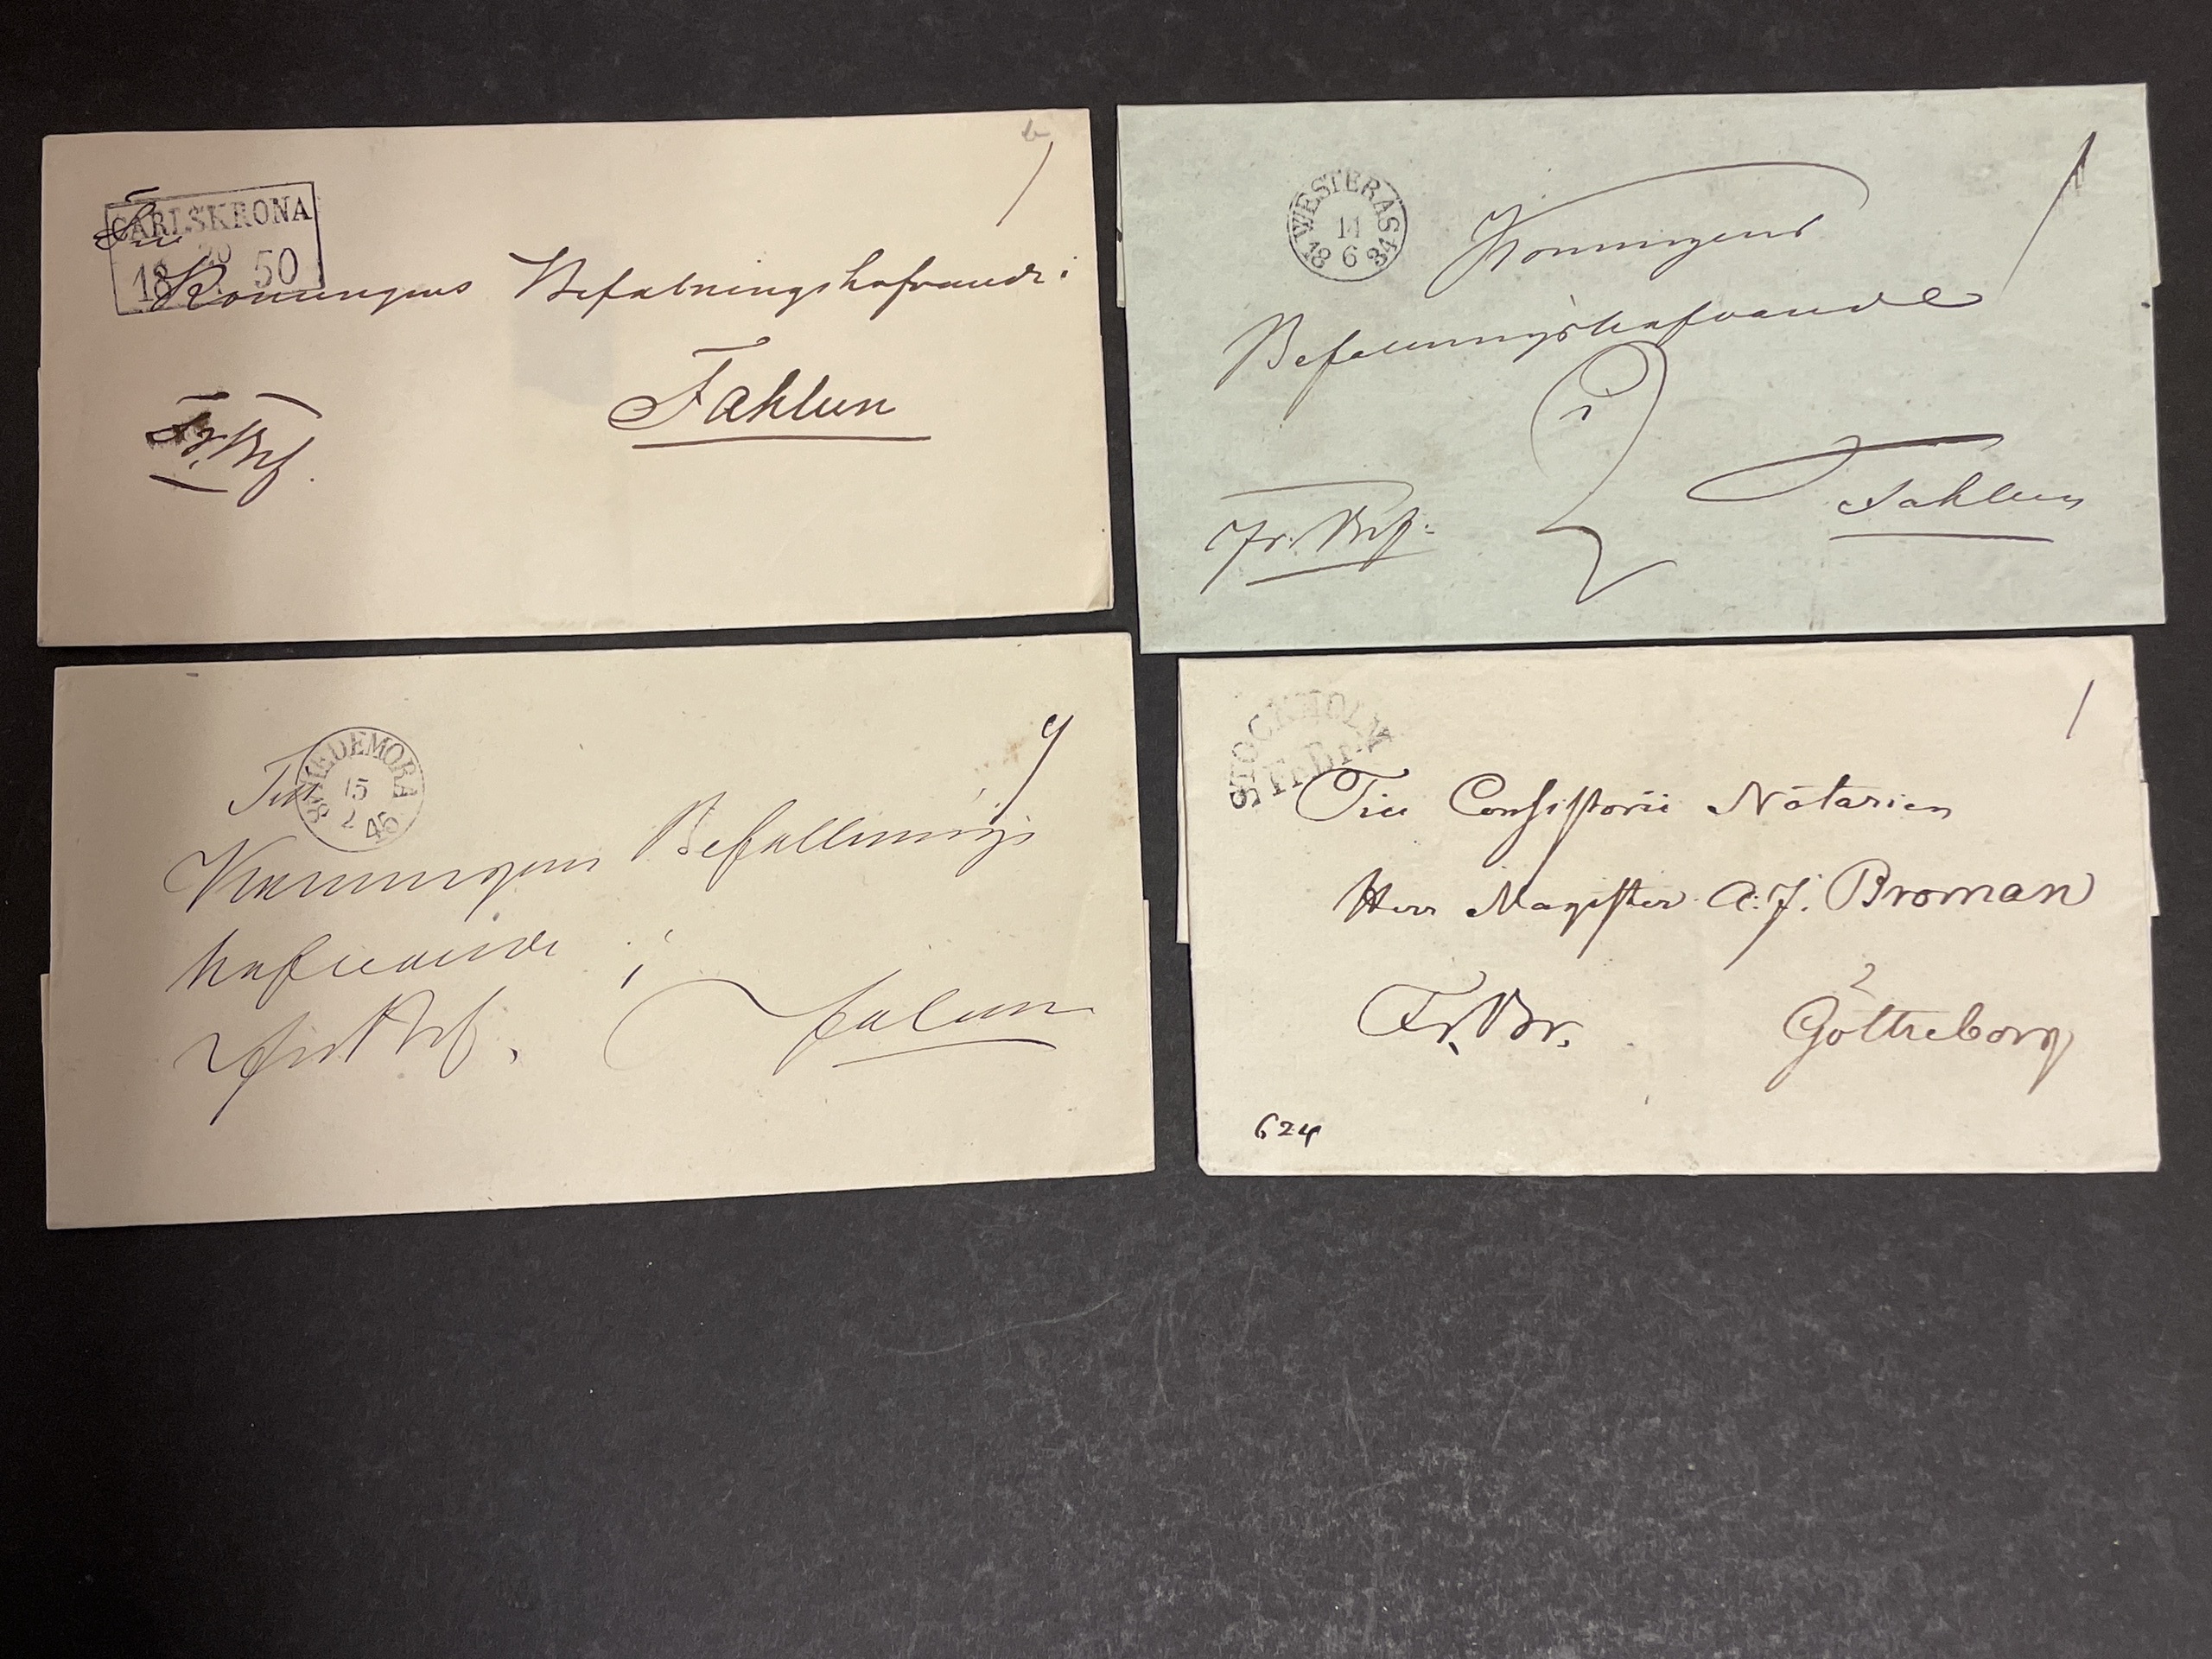 CARLSKRONA
18 20 50
Till
Konungens Befalningshafvande i
Fahlun
Fr. Bref.
WESTERÅS
11
18 6 34
Konungens
Befallningshafvande
i
Fahlun
Fr. Bref:
HEDEMORA
15
18 2 45
Till
Konungens Befallnings
hafvande i
Falun
Fri Bref.
STOCKHOLM
Fr.Br.
Till Consistorii Notarien
Herr Magister A: J: Broman
Fr. Br. Götheborg
624